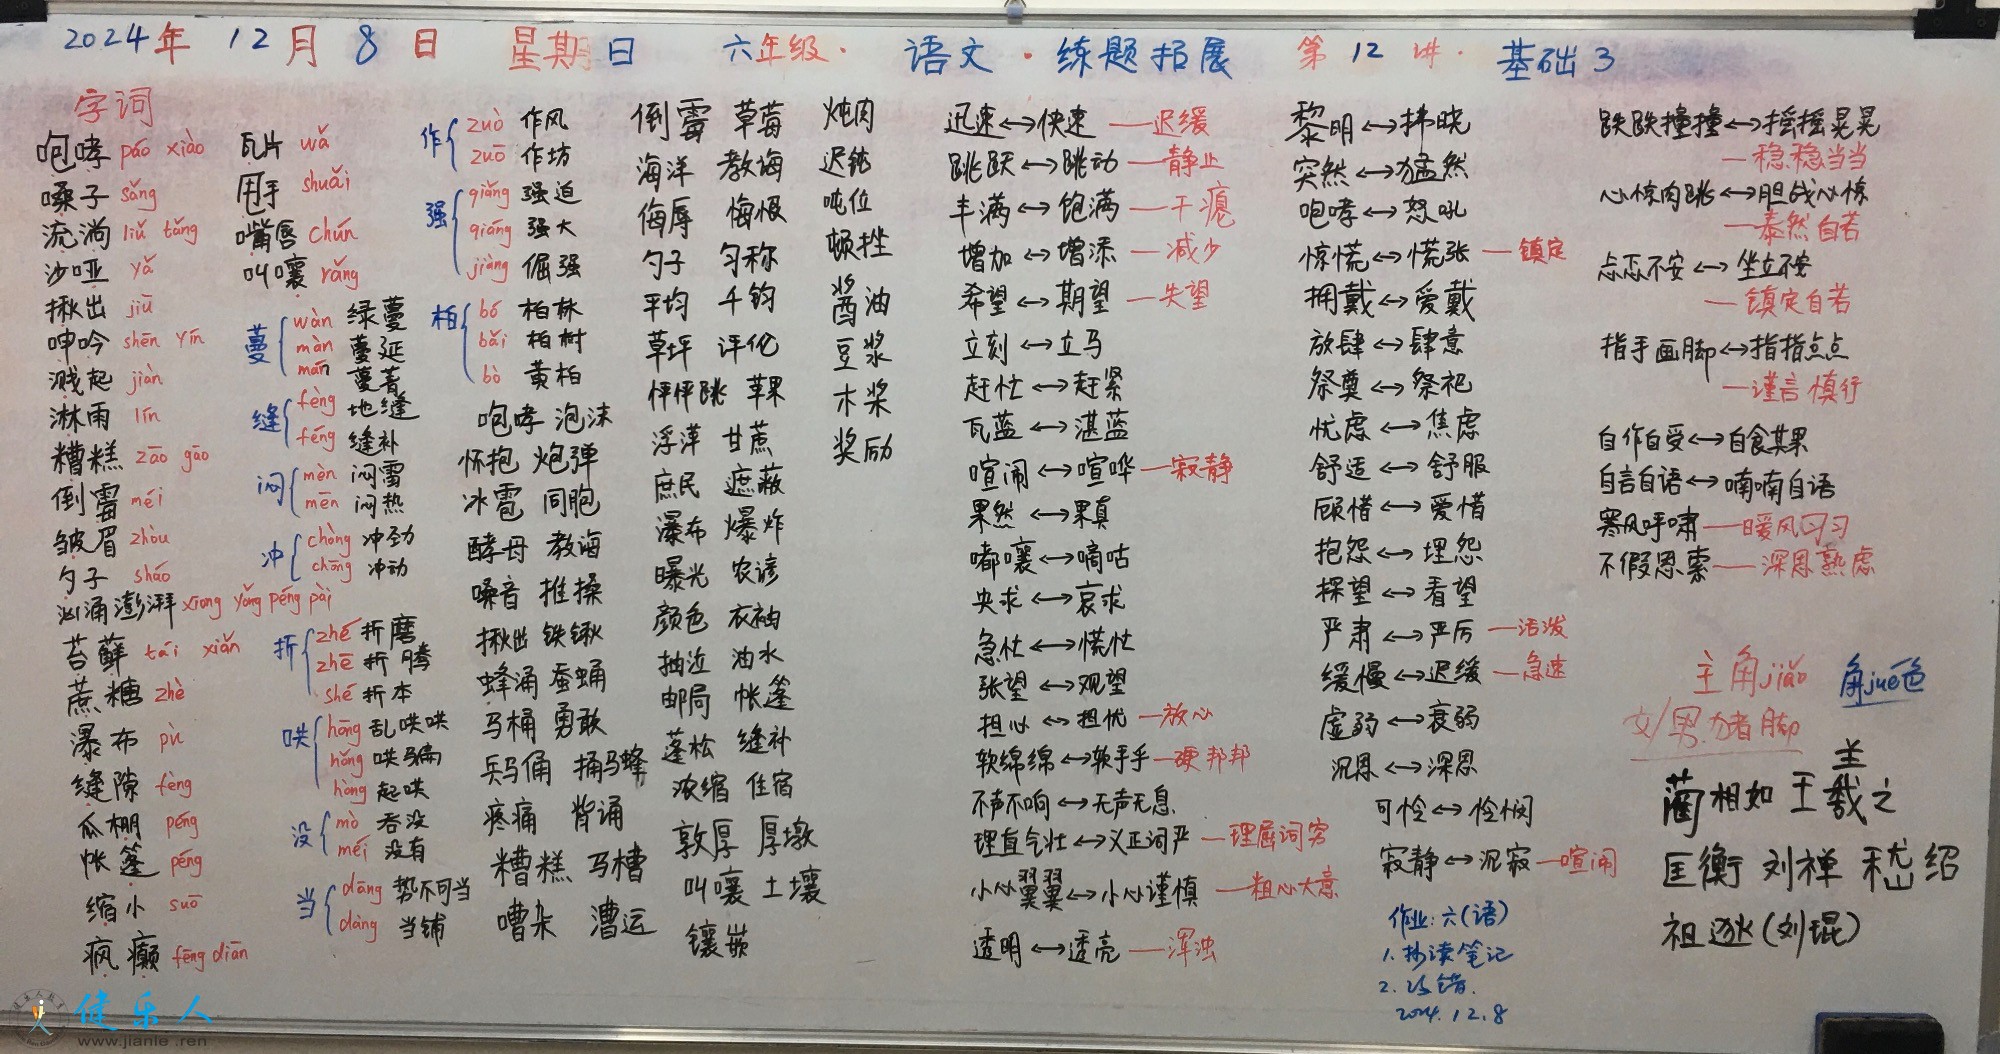 2024年 12月 8日 星期日 六年级· 语文·练题拓展 第12讲· 基础3
字词
咆哮 páo xiào
嗓子 sǎng
流淌 liú tǎng
沙哑 yǎ
揪出 jiū
呻吟 shēn yín
溅起 jiàn
淋雨 lín
糟糕 zāo gāo
倒霉 méi
皱眉 zhòu
勺子 sháo
汹涌澎湃 xiong yǒng péng pài
苔藓 tái xiǎn
蔗糖 zhè
瀑布 pù
缝隙 fèng
瓜棚 péng
帐篷 péng
缩小 suō
疯癫 fēng diān
瓦片 wǎ
甩手 shuǎi
嘴唇 chún
叫嚷 rǎng
蔓 wàn 绿蔓
màn 蔓延
mán 蔓菁
缝 fèng 地缝
féng 缝补
闷 mèn 闷雷
mēn 闷热
冲 chòng 冲劲
chōng 冲动
折 zhé 折磨
zhē 折腾
shé 折本
哄 hōng 乱哄哄
hǒng 哄骗
hòng 起哄
没 mò 吞没
méi 没有
当 dāng 势不可当
dàng 当铺
作 zuò 作风
zuō 作坊
强 qiǎng 强迫
qiáng 强大
jiàng 倔强
柏 bó 柏林
bǎi 柏树
bò 黄柏
咆哮 泡沫
怀抱 炮弹
冰雹 同胞
酵母 教诲
噪音 推搡
揪出 铁锹
蜂涌 蚕蛹
马桶 勇敢
兵马俑 捅马蜂
疼痛 背诵
糟糕 马槽
嘈杂 漕运
倒霉 草莓
海洋 教诲
侮辱 悔恨
勺子 匀称
平均 千钧
草坪 评化
怦怦跳 苹果
浮萍 甘蔗
庶民 遮蔽
瀑布 爆炸
曝光 农谚
颜色 衣袖
抽泣 油水
邮局 帐篷
蓬松 缝补
浓缩 住宿
敦厚 厚墩
叫嚷 土壤
镶嵌
炖肉
迟钝
吨位
顿挫
酱油
豆浆
木桨
奖励
迅速↔快速 —迟缓
跳跃↔跳动 —静止
丰满↔饱满 —干瘪
增加↔增添 —减少
希望↔期望 —失望
立刻↔立马
赶忙↔赶紧
瓦蓝↔湛蓝
喧闹↔喧哗—寂静
果然↔果真
嘟囔↔嘀咕
央求↔哀求
急忙↔慌忙
张望↔观望
担心↔担忧 —放心
软绵绵↔软乎乎—硬邦邦
不声不响↔无声无息
理直气壮↔义正词严 —理屈词穷
小心翼翼↔小心谨慎 —粗心大意
透明↔透亮 —浑浊
黎明↔拂晓
突然↔猛然
咆哮↔怒吼
惊慌↔慌张 —镇定
拥戴↔爱戴
放肆↔肆意
祭奠↔祭祀
忧虑↔焦虑
舒适↔舒服
顾惜↔爱惜
抱怨↔埋怨
探望↔看望
严肃↔严厉 —活泼
缓慢↔迟缓 —急速
虚弱↔衰弱
沉思↔深思
可怜↔怜悯
寂静↔沉寂—喧闹
作业:六(语)
1.抄读笔记
2.改错.
2024.12.8
跌跌撞撞↔摇摇晃晃
—稳稳当当
心惊肉跳↔胆战心惊
—泰然自若
忐忑不安↔坐立不安
—镇定自若
指手画脚↔指指点点
—谨言慎行
自作自受↔自食其果
自言自语↔喃喃自语
寒风呼啸—暖风习习
不假思索—深思熟虑
主角jiǎo 角jué色
文/男 猪脚
蔺相如 王羲之
匡衡 刘禅 嵇绍
祖逖(刘琨)
健乐人
www.jianle.ren